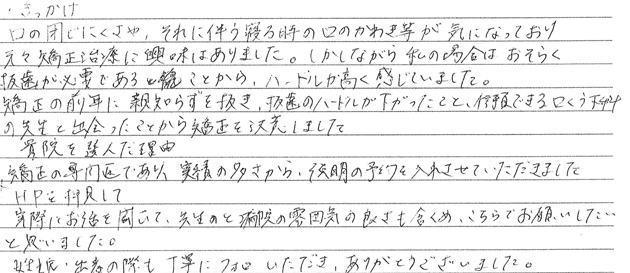 ・きっかけ
口の閉じにくさや、それに伴う寝る時の口のかわき等が気になっており
元々矯正治療に興味はありました。しかしながら私の場合はおそらく
抜歯が必要であると聴くことから、ハードルが高く感じていました。
矯正の前年に親知らずを抜き、抜歯のハードルが下がったこと、信頼できる口くう外科
の先生と出会ったことから矯正を決意しました
貴院を選んだ理由
矯正の専門医であり、実績の多さから、説明の予約を入れさせていただきました
HPを拝見して
実際にお話を聞いて、先生のと病院の雰囲気の良さも含め、こちらでお願いしたい
と思いました。
妊娠・出産の際も丁寧にフォローいただき、ありがとうございました。